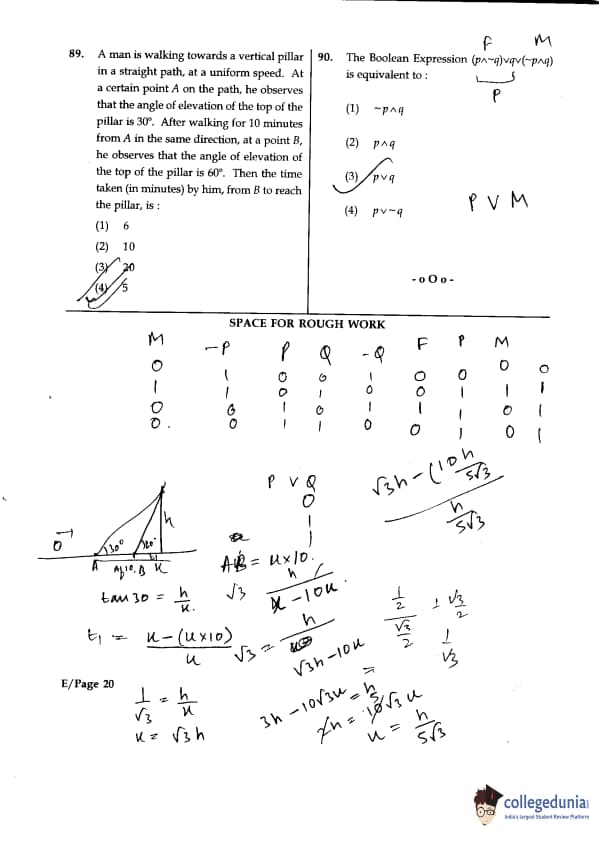 89. A man is walking towards a vertical pillar
in a straight path, at a uniform speed. At
a certain point A on the path, he observes
that the angle of elevation of the top of the
pillar is 30°. After walking for 10 minutes
from A in the same direction, at a point B,
he observes that the angle of elevation of
the top of the pillar is 60°. Then the time
taken (in minutes) by him, from B to reach
the pillar, is :
(1) 6
(2) 10
(3) 20
(4) 5
F M
90. The Boolean Expression (p∧~q)∨q∨(~p∧q)
is equivalent to :
P
(1) ~p∧q
(2) p∧q
(3) p∨q
(4) p∨~q
P V M
-oOo-
SPACE FOR ROUGH WORK
M -P P Q -Q F P M
0 1 0 0 1 0 0 0 0
1 1 0 1 0 0 1 1 1
0 0 1 0 1 1 1 0 1
0. 0 1 1 0 0 1 0 1
P V Q
0
1
1
1
√3h - (10h/5√3)
h/5√3
h
30°
A B x
tan 30 = h/x
AB = u×10.
√3 h/x-10u
t₁ = x-(u×10)/u
√3 = h/√3h-10u
1/2 / √3/2
1/√3
1/√3 = h/x
x = √3h
3h - 10√3u = h
u = h/5√3
E/Page 20
collegedunia
India's largest Student Review Platform